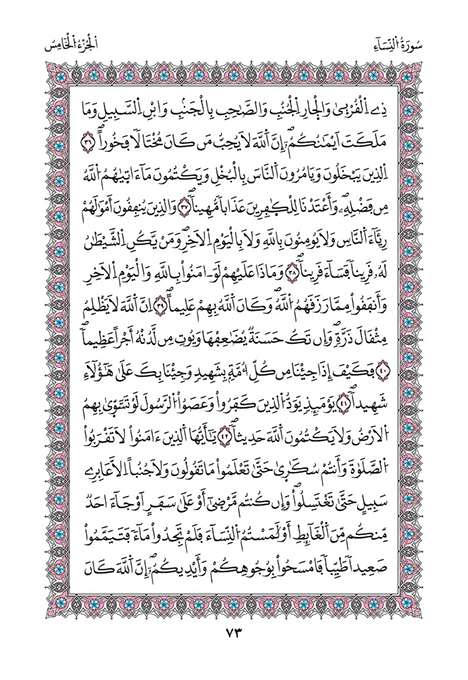 سُورَةُ النِّسَآءِ
الجُزْءُ الخَامِسُ
ذِے اِ۬لْقُرْبَيٰ وَالْجَارِ اِ۬لْجُنُبِ وَالصَّاحِبِ بِالْجَنۢبِ وَابْنِ اِ۬لسَّبِيلِ وَمَا
مَلَكَتَ اَيْمَٰنُكُمُۥٓ إِنَّ اَ۬للَّهَ لَا يُحِبُّ مَن كَانَ مُخْتَالاٗ فَخُوراًۖ ٣٦
اِ۬لذِينَ يَبْخَلُونَ وَيَامُرُونَ اَ۬لنَّاسَ بِالْبُخْلِ وَيَكْتُمُونَ مَآ ءَاتَيٰهُمُ اُ۬للَّهُ
مِن فَضْلِهِۦۖ وَأَعْتَدْنَا لِلْكٰ۪فِرِينَ عَذَاباٗ مُّهِيناٗۖ ٣٧ وَالذِينَ يُنفِقُونَ أَمْوَٰلَهُمْ
رِئَآءَ اَ۬لنَّاسِ وَلَا يُومِنُونَ بِاللَّهِ وَلَا بِالْيَوْمِ اِ۬لَاخِرِۖ وَمَنْ يَّكُنِ اِ۬لشَّيْطَٰنُ
لَهُۥ قَرِيناٗ فَسَآءَ قَرِيناٗۖ ٣٨ وَمَاذَا عَلَيْهِمْ لَوَ اٰمَنُواْ بِاللَّهِ وَالْيَوْمِ اِ۬لَاخِرِ
وَأَنفَقُواْ مِمَّا رَزَقَهُمُ اُ۬للَّهُۖ وَكَانَ اَ۬للَّهُ بِهِمْ عَلِيماًۖ ٣٩ اِنَّ اَ۬للَّهَ لَا يَظْلِمُ
مِثْقَالَ ذَرَّةٖۖ وَإِن تَكُ حَسَنَةٞ يُضَٰعِفْهَا وَيُوتِ مِن لَّدُنْهُ أَجْراً عَظِيماٗۖ
٤٠ فَكَيْفَ إِذَا جِئْنَا مِن كُلِّ أُمَّةِۢ بِشَهِيدٖ وَجِئْنَا بِكَ عَلَىٰ هَٰٓؤُلَآءِ
شَهِيداٗۖ ٤١ يَوْمَئِذٖ يَوَدُّ اُ۬لذِينَ كَفَرُواْ وَعَصَوُاْ اُ۬لرَّسُولَ لَوْ تَسَّوّ۪يٰ بِهِمُ
اُ۬لَارْضُ وَلَا يَكْتُمُونَ اَ۬للَّهَ حَدِيثاٗۖ ٤٢ يَٰٓأَيُّهَا اَ۬لذِينَ ءَامَنُواْ لَا تَقْرَبُواْ
اُ۬لصَّلَوٰةَ وَأَنتُمْ سُكَٰر۪يٰ حَتَّيٰ تَعْلَمُواْ مَا تَقُولُونَ وَلَا جُنُباً اِلَّا عَابِرِے
سَبِيلٍ حَتَّيٰ تَغْتَسِلُواْۖ وَإِن كُنتُم مَّرْض۪يٰٓ أَوْ عَلَيٰ سَفَرٍ اَوْ جَآءَ احَدٞ
مِّنكُم مِّنَ اَ۬لْغَآئِطِ أَوْ لَٰمَسْتُمُ اُ۬لنِّسَآءَ فَلَمْ تَجِدُواْ مَآءٗ فَتَيَمَّمُواْ
صَعِيداٗ طَيِّباٗ فَامْسَحُواْ بِوُجُوهِكُمْ وَأَيْدِيكُمُۥٓۖ إِنَّ اَ۬للَّهَ كَانَ
٧٣